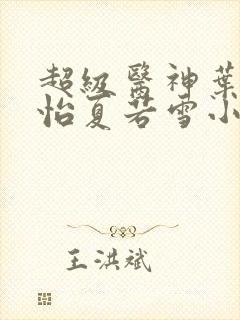 超級醫神葉
怡夏若雪小
王洪斌